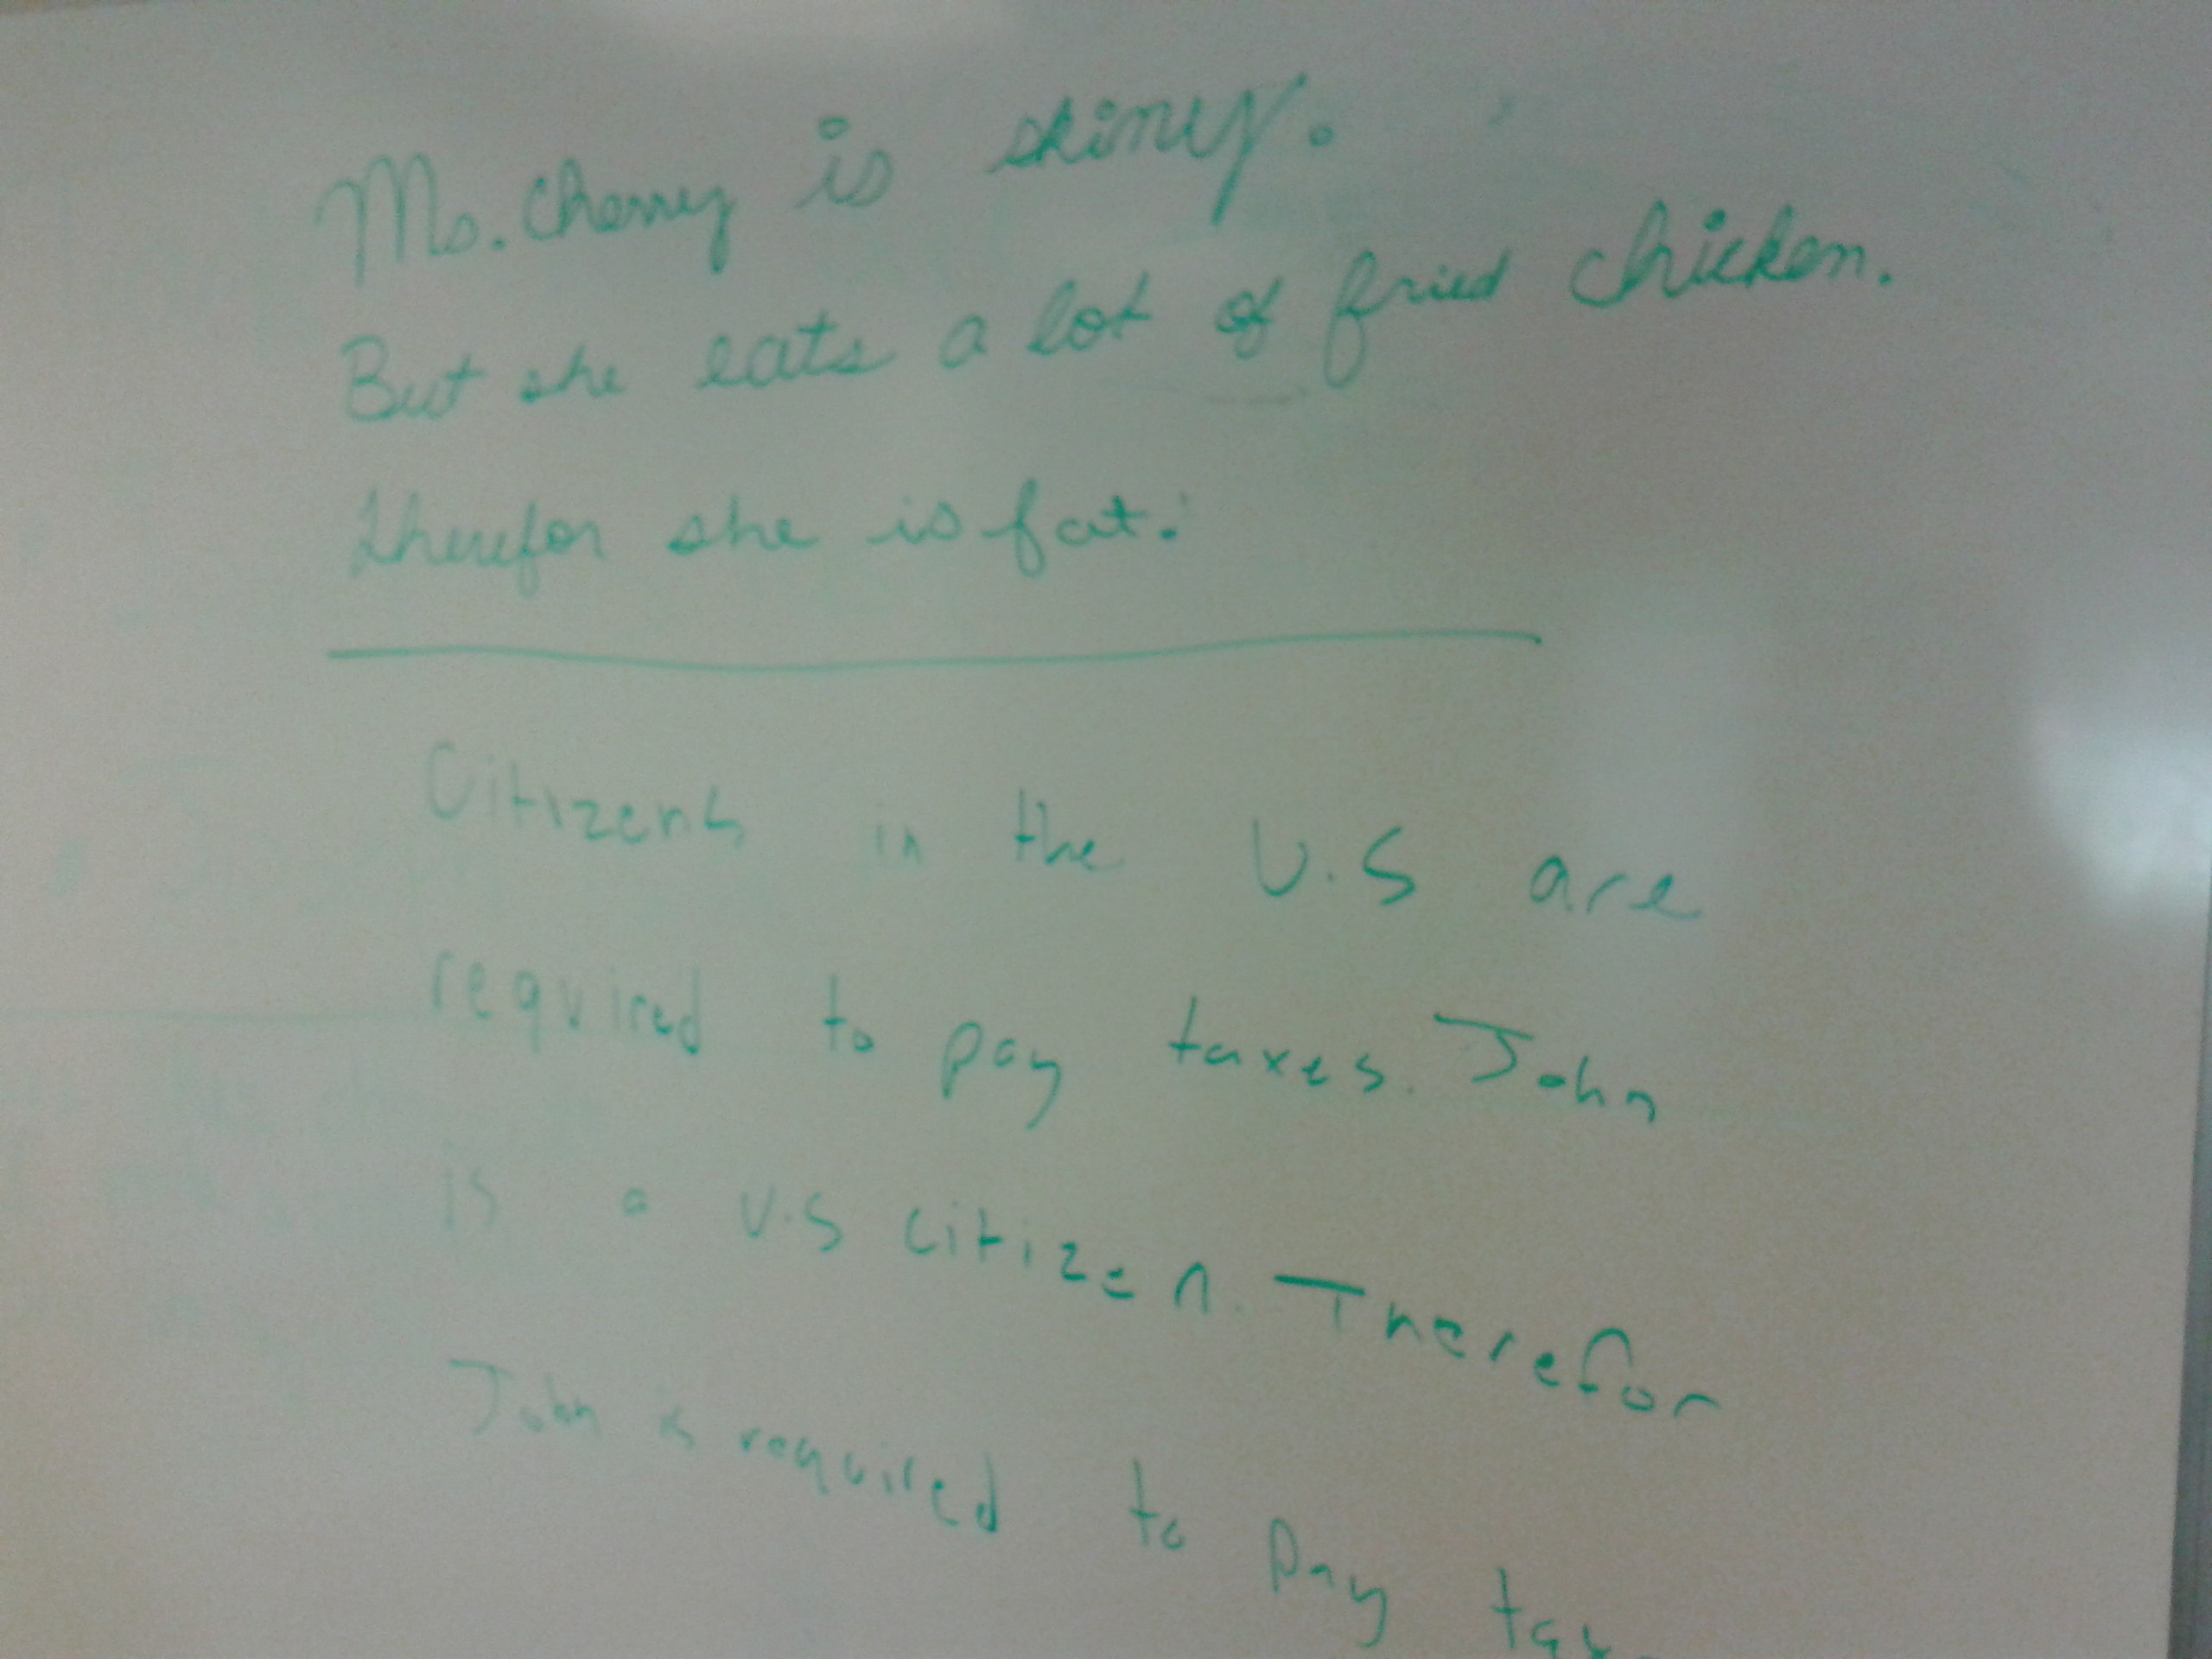 Ms. Cherry is skinny.
But she eats a lot of fried chicken.
therefor she is fat.
Citizens in the U.S are
required to pay taxes. John
is a U.S citizen. Therefor
John is required to pay tax